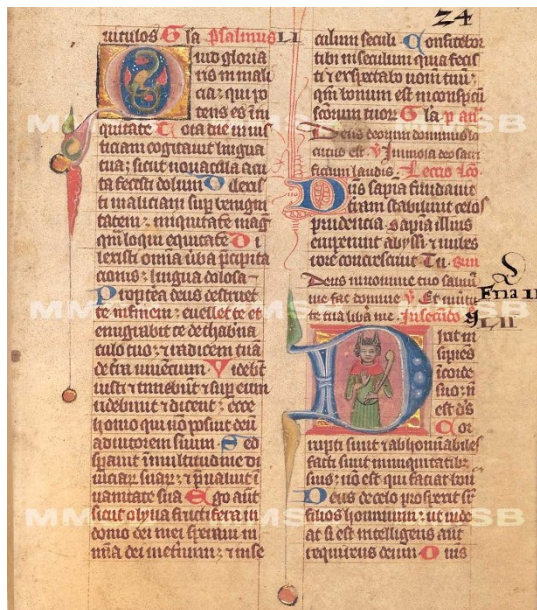 24
uitulos Gla psalmus LI
Quid gloria
ris in mali
cia: qui po
tens es in i
quitate Tota die inius
ticiam cogitauit lingua
tua: sicut nouacula acu
ta fecisti dolum Dilexis
ti maliciam sup benigni
tatem: iniquitatē mag
qm̄ loqui equitatē Di
lexisti omnia ūba p̄cipita
cionis: lingua dolosa
Propterea deus destruet
te in finem: euellet te et
emigrabit te de thabna
culo tuo: et radicem tuā
de t̄ra uiuencium Videbt
iusti et timebunt et sup eum
ridebunt et dicent: ecce
homo qui nō posuit deū
adiutorem suum Sed
sperauit in multitudine di
uiciar suar: et p̄ualuit i
uanitate sua Ego aut
sicut olyua fructifera in
domo dei mei speraui in
mīa dei in et̄num: et in se
culum seculi Confitebor
tibi in seculum quia fecis
ti et exspectabo nomen tuū:
qm̄ bonum est in conspectu
scōrum tuor Gla p
Deus deorum dominus lo
cutus est Immola deo sacri
ficium laudis
Dn̄s sapiā fundauit
t̄ram stabiliuit celos
prudencia sapiā illius
eruperunt abyssi et nubes
rore concrescunt Tu
Deus in nomine tuo saluū
me fac domine Et in uirtu
te tua libā me
Fria II
LII
Dixit in
sipiēs
i corde
suo: nō
est ds̄
Cor
rupti sunt et abhominabiles
facti sunt in iniquitatibz
suis: nō est qui faciat bonū
Deus de celo prospexit sr̄
filios hominum: ut uide
at si est intelligens aut
requirens deum Omēs
MSB